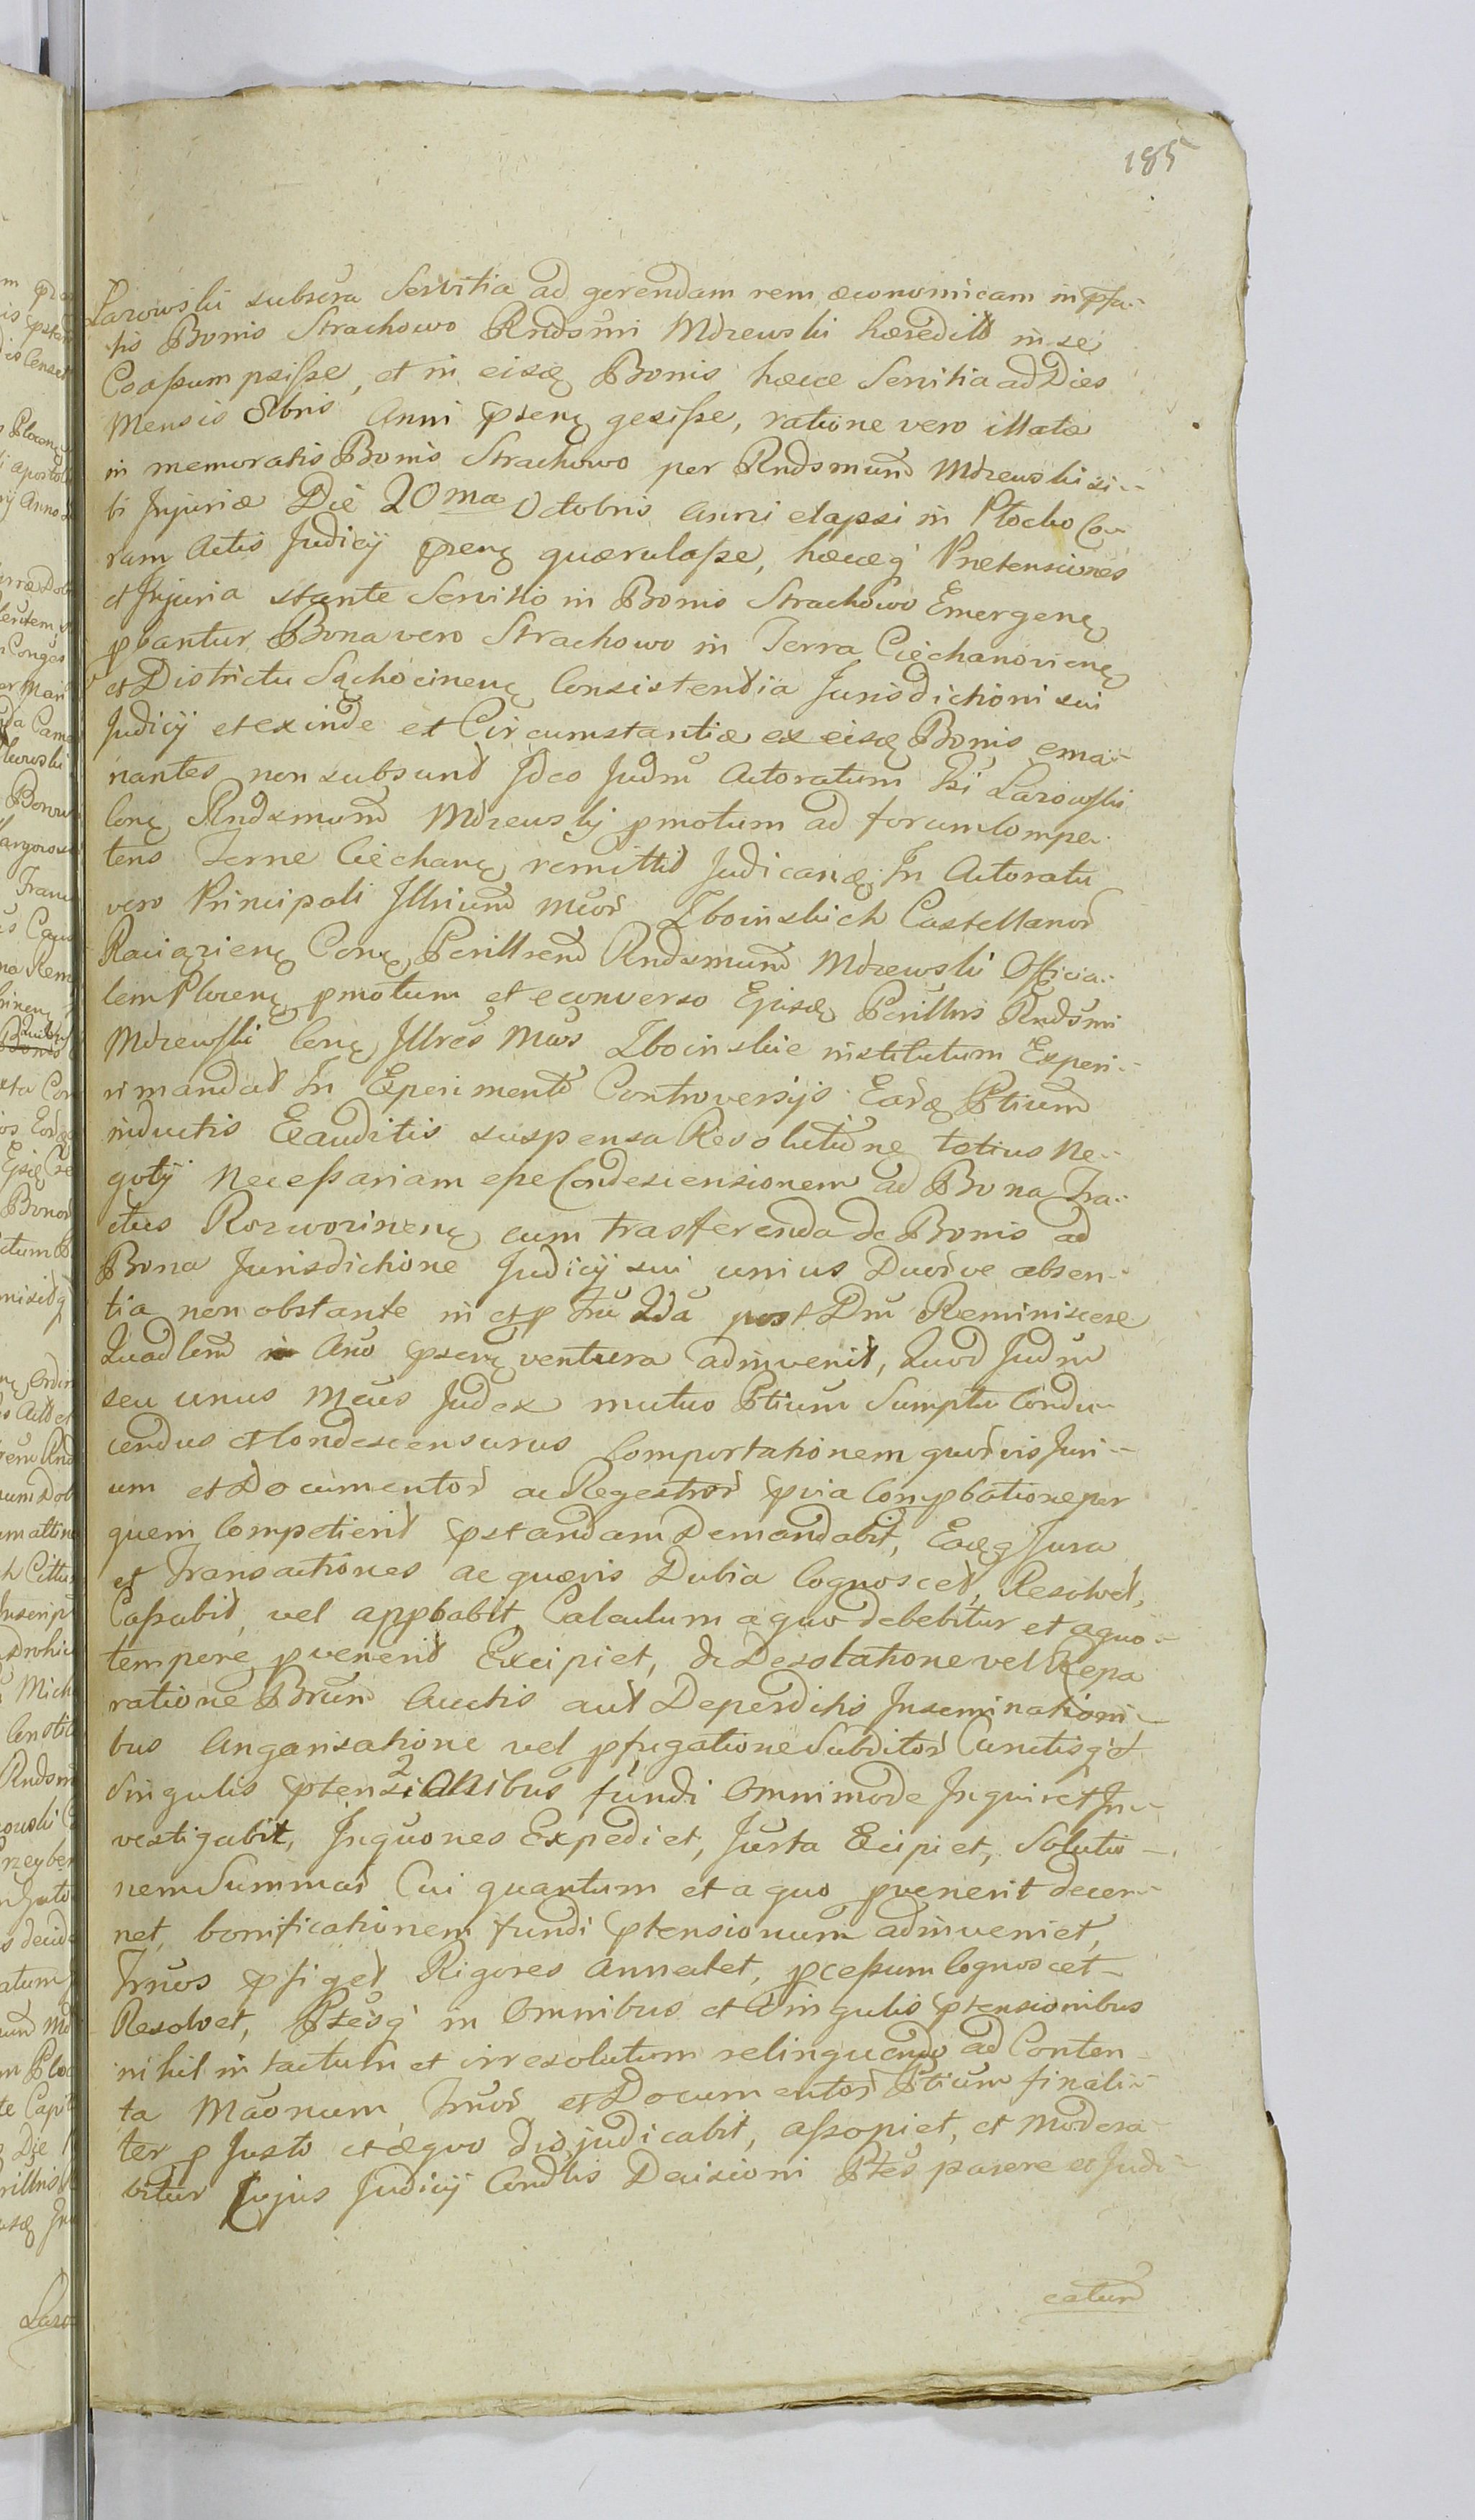 185
Łazowski subsua Servitia ad gerendam rem æconomicam in pfa-
tis Bonis Strachowo Rndsmi Mdzewski hæredit in se
Coaßumpsiße, et in eisd Bonis hæcce Servitia ad Dies
Mensis 8bris Anni psenς geziße, ratione vero illatæ
in memoratis Bonis Strachowo per Rndsmum Mdzewski si-
bi Injuriæ Die 20ma Octobris anni elapsi in Płocko Co-
ram Actis Judicij psenς quærulaße, hæceq Prætensiones
et Injuria stante Servitio in Bonis Strachowo Emergenς
pbantur, Bona vero Strachowo in Terra Ciechanovienς
et Districtu Sąchocinenς Consistentia Jurisdictioni sui
Judicij et exinde et Circumstantiæ ex eisd Bonis ema-
nantes non subsunt Ideo Judm Actoratum Gsi Łazowski
Conς Rndsmum Mdzewsky pmotum ad forum Compe-
tens Terræ Ciechanς remittit Judicanς In Actoratu
vero Principali Illrium Mcor Zboinskich Castellanor
Raciązienς Conς Perillrem Rndsmum Mdzewski Officia-
lem Plocenς pmotum et econverso Ejusd Perillris Rndsmi
Mdzewski Conς Illres Mcos Zboinskie institutum Experi-
ri mandat In Eperimento Controversijs Eard Ptium
inductis Exauditis suspensa Resolutione totius Ne-
gotij Neceßariam eße Condescensionem ad Bona Tra-
ctus Rozwozinenς cum trasferenda de Bonis ad
Bona Jurisdictione Judicij sui unius Duorve absen-
tia non obstante in et p Fria 2da post Dm Reminiscere
Quadlem Ano psenς ventura adinvenit, Quod Judm
seu unus Mcus Judex mutuo Ptium Sumptu Condu-
cendus et Condescensurus Comportationem quorvis Juri-
um et Documentor ac Regestror pvia Compbatione per
quem Competierit pstandam Demandabit, Eaqς Jura
et Transactiones ac quævis Dubia Cognoscet, Resolvet,
Caßabit, vel appbabit Calculum a quo debebitur et a quo
tempore pvenerit Excipiet, de Desolatione vel Repa
ratione Brum Auctis aut Deperditis Inseminationi-
bus Angarisatione vel pfugatione Subditor Cunctisq et
Singulis ptensionibus fundi Omnimode Inquiret In-
vestigabit, Inquones Expediet, Jurta Excipiet, Solutio-
nem Summar Cui quantum et a quo pvenerit decer-
net, bonificationem fundi ptensionum adinveniet,
Trnos pfiget Rigores annectet, pceßum Cognoscet
Resolvet, Ptesq in Omnibus et Singulis ptensionibus
nihil in tactum et irresolutum relinquendo ad Conten-
ta Maonum, Trnor et Documentor Ptium finali-
ter p Justo et æquo dijudicabit, aßopiet, et modera-
bitur Cujus Judicij Condlis Decisioni Ptes parere et Judi-
catum